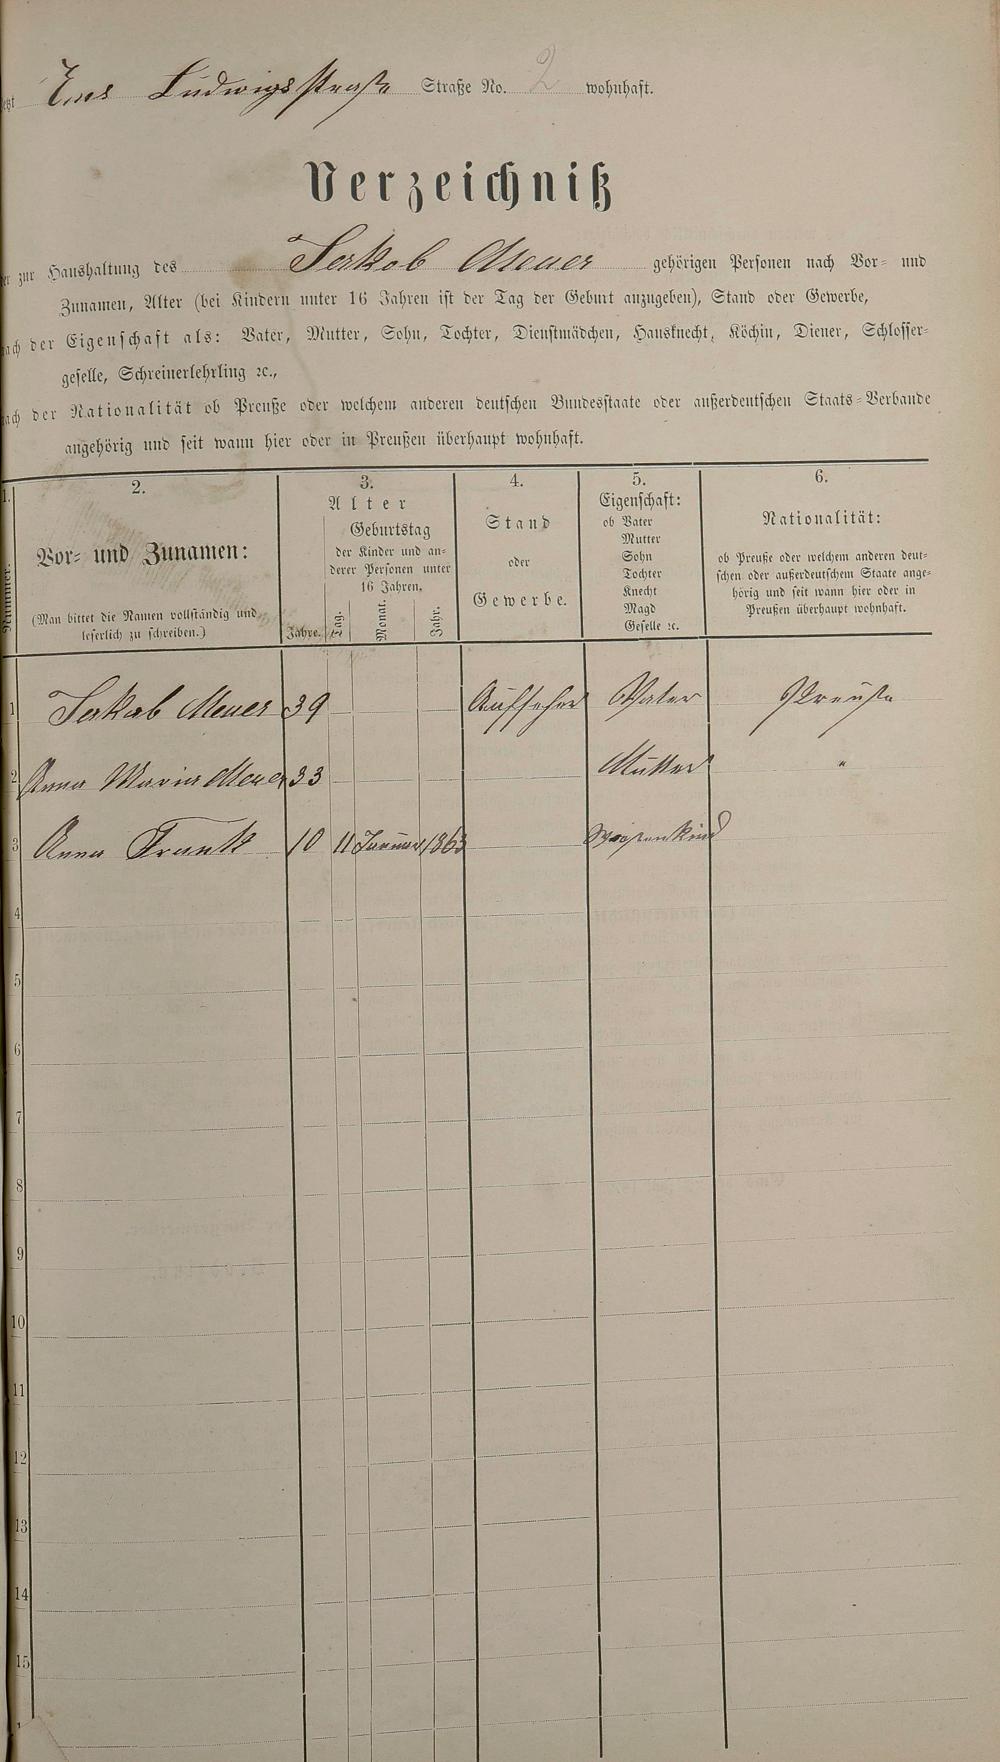 jetzt Ems Ludwigsstraße Straße No. 2 wohnhaft.
Verzeichniß
der zur Haushaltung des Jakob Meuer gehörigen Personen nach Vor- und
Zunamen, Alter (bei Kindern unter 16 Jahren ist der Tag der Geburt anzugeben), Stand oder Gewerbe,
nach der Eigenschaft als: Vater, Mutter, Sohn, Tochter, Dienstmädchen, Hausknecht, Köchin, Diener, Schlosser-
geselle, Schreinerlehrling ꝛc.,
nach der Nationalität ob Preuße oder welchem anderen deutschen Bundesstaate oder außerdeutschen Staats-Verbande
angehörig und seit wann hier oder in Preußen überhaupt wohnhaft.
1.
Nummer.
2.
Vor- und Zunamen:
(Man bittet die Namen vollständig und
leserlich zu schreiben.)
3.
Alter
Geburtstag
der Kinder und an-
derer Personen unter
16 Jahren.
Jahre. Tag. Monat. Jahr.
4.
Stand
oder
Gewerbe.
5.
Eigenschaft:
ob Vater
Mutter
Sohn
Tochter
Knecht
Magd
Geselle ꝛc.
6.
Nationalität:
ob Preuße oder welchem anderen deut-
schen oder außerdeutschem Staate ange-
hörig und seit wann hier oder in
Preußen überhaupt wohnhaft.
1 Jakob Meuer 39 Aufseher Vater Preuße
2 Anna Maria Meuer 33 Mutter "
3 Anna Frank 10 11 Januar 1863 Waisenkind
4
5
6
7
8
9
10
11
12
13
14
15